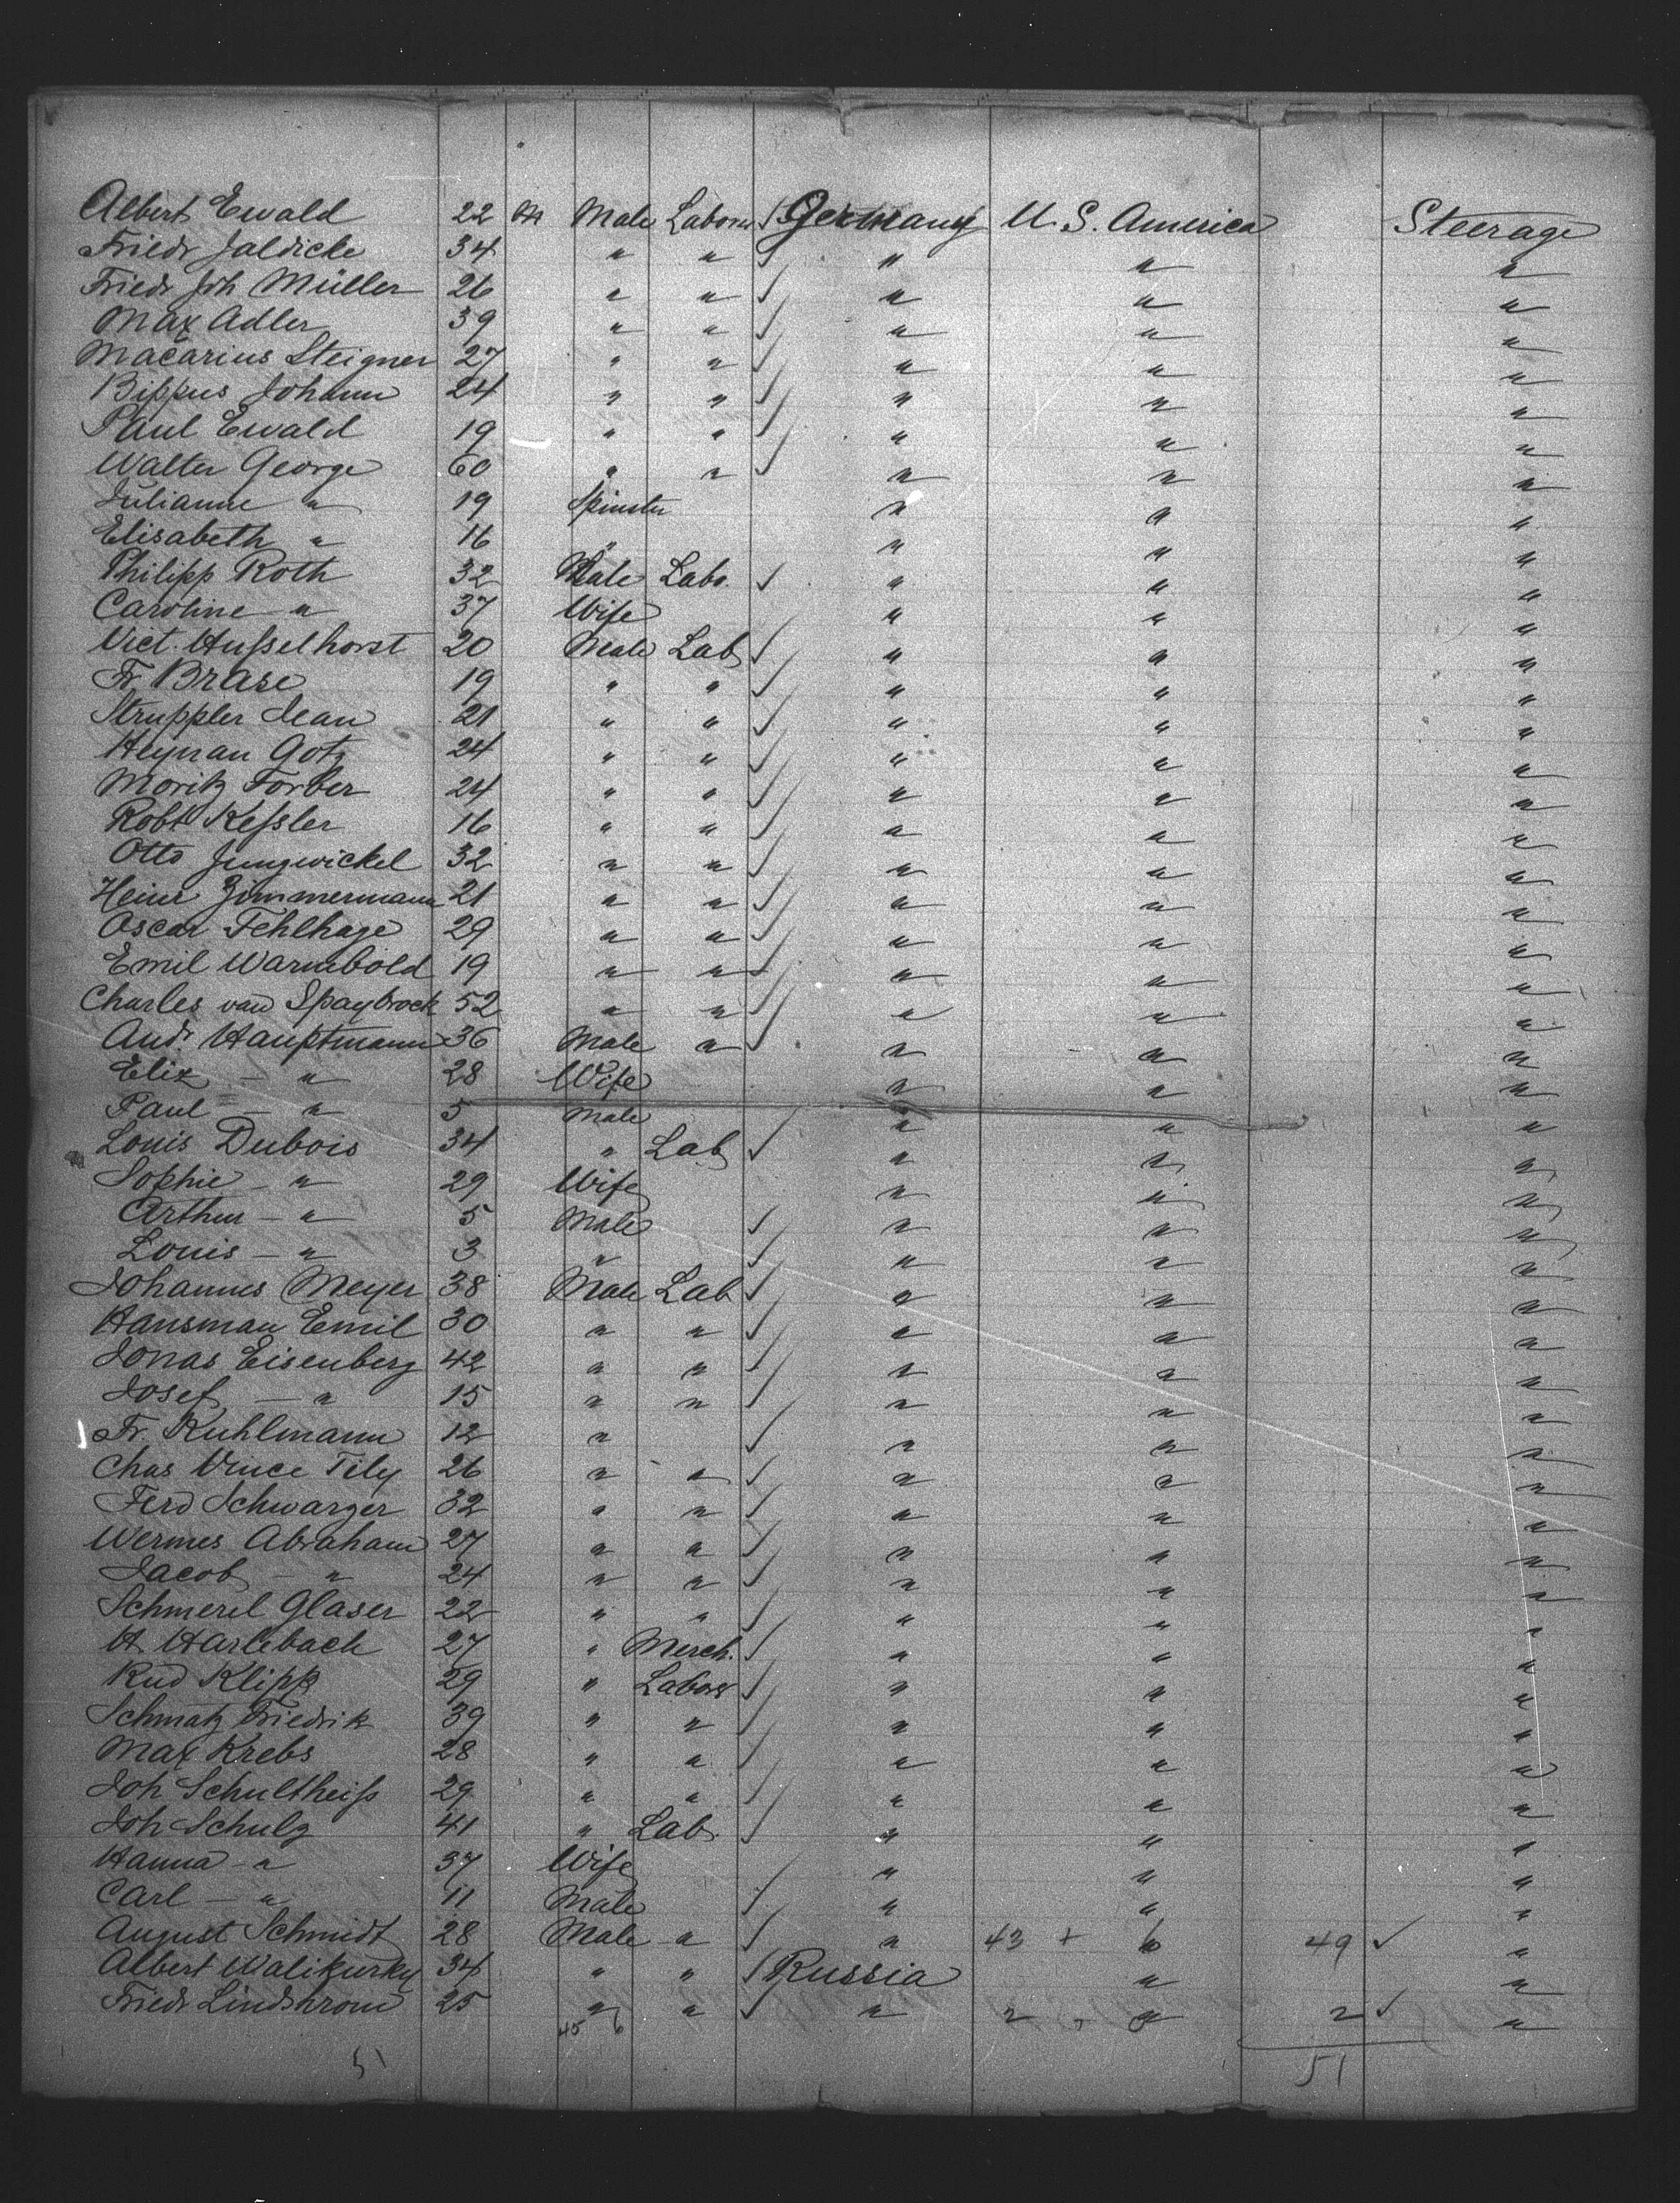 Albert Ewald 22 M Male Labour √ Germany U. S. America Steerage
Friedr Jaldicke 34 " " √ " " "
Friedr Joh Müller 26 " " √ " " "
Max Adler 39 " " √ " " "
Macarius Steigner 27 " " √ " " "
Bippus Johann 24 " " √ " " "
Paul Ewald 19 " " √ " " "
Walter George 60 " " √ " " "
Julianne " 19 Spinster " " "
Elisabeth " 16 " " " "
Philipp Roth 32 Male Labr. √ " " "
Caroline " 37 Wife " " "
Vict. Husselhorst 20 Male Lab √ " " "
Fr Brase 19 " " √ " " "
Struppler Jean 21 " " √ " " "
Heyman Gotz 24 " " √ " " "
Moritz Forber 24 " " √ " " "
Robt Kessler 16 " " √ " " "
Otto Jungwickel 32 " " √ " " "
Heinr Zimmermann 21 " " √ " " "
Oscar Fehlhage 29 " " √ " " "
Emil Warnebold 19 " " √ " " "
Charles van Spaybrock 52 " " √ " " "
Andr Hauptmann 36 Male " √ " " "
Eliz - " 28 Wife " " "
Paul - " 5 Male " " "
Louis Dubois 34 " Lab √ " " "
Sophie - " 29 Wife " " "
Arthur - " 5 Male √ " " "
Louis - " 3 " √ " " "
Johannes Meyer 38 Male Lab √ " " "
Hansman Emil 30 " " √ " " "
Jonas Eisenberg 42 " " √ " " "
Josef - " 15 " " √ " " "
Fr. Kuhlmann 12 " √ " " "
Chas Vince Tily 26 " " √ " " "
Ferd Schwarzer 32 " " √ " " "
Wermes Abraham 27 " " √ " " "
Jacob - " 24 " " √ " " "
Schmerel Glaser 22 " " √ " " "
H Harlebach 27 " Merch. √ " " "
Rud Klipp 29 " Labour √ " " "
Schmatz Friedrik 39 " " √ " " "
Max Krebs 28 " " √ " " "
Joh Schultheiss 29 " " √ " " "
Joh Schulz 41 " Lab. √ " " "
Hanna - " 37 Wife " " "
Carl - " 11 Male √ " " "
August Schmidt 28 Male " √ " 43 + 6 49 √ "
Albert Walikursky 34 " " √ Russia " "
Friedr Lindstrom 25 " " √ " 2 " 2 √ "
45 6
51 51